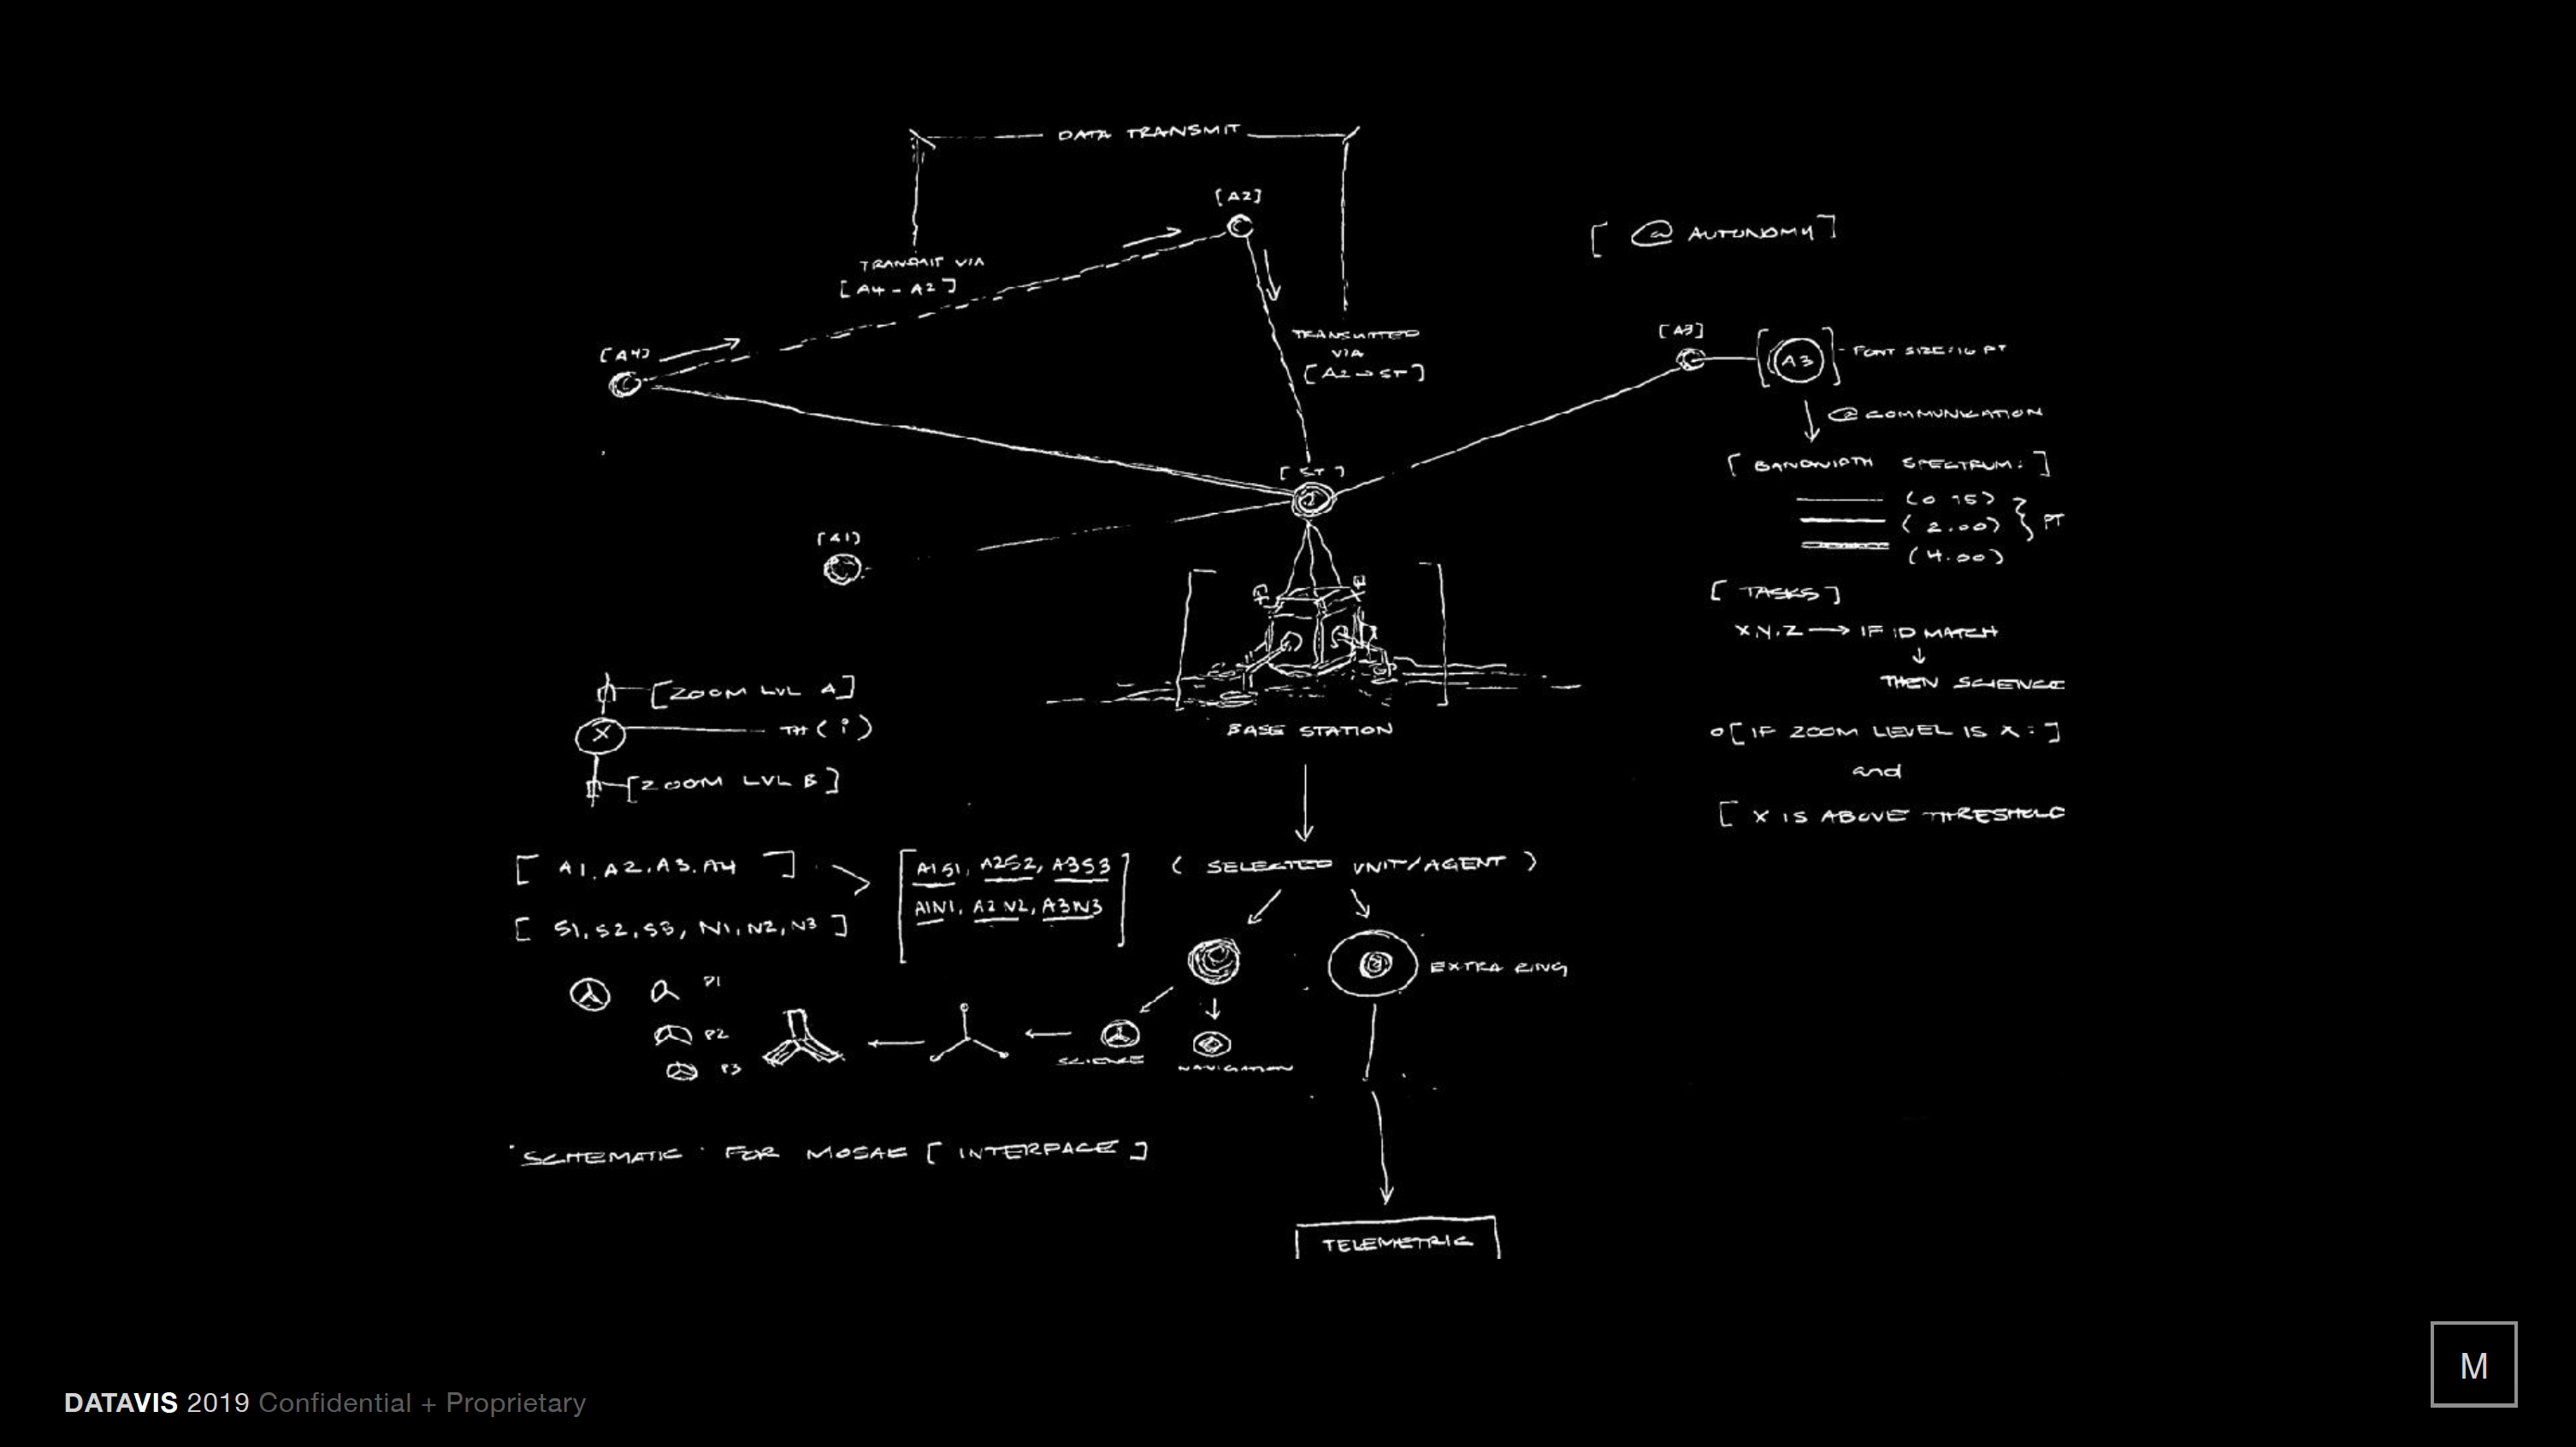 DATA TRANSMIT
[A2]
[@ AUTONOMY]
TRANSMIT VIA
[A4 - A2]
TRANSMITTED
VIA
[A2→ST]
[A4]
[A3]
[A3] - FONT SIZE: 16 PT
@ COMMUNICATION
[BANDWIDTH SPECTRUM:]
(0.75)
(2.00) } PT
(4.00)
[ST]
[A1]
[TASKS]
X,Y,Z → IF ID MATCH
↓
THEN SCIENCE
[IF ZOOM LEVEL IS X:]
and
[X IS ABOVE THRESHOLD
BASE STATION
[ZOOM LVL A]
X TH(i)
[ZOOM LVL B]
[A1, A2, A3, A4]
[S1, S2, S3, N1, N2, N3]
[A1S1, A2S2, A3S3
A1N1, A2N2, A3N3]
(SELECTED UNIT/AGENT)
EXTRA RING
P1
P2
P3
SCIENCE
NAVIGATION
'SCHEMATIC' FOR MOSAIC [INTERFACE]
TELEMETRIC
M
DATAVIS 2019 Confidential + Proprietary